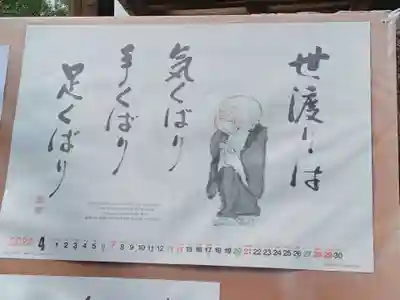 世渡りは
気くばり
手くばり
足くばり
4
1 2 3 4 5 6 7 8 9 10 11 12 13 14 15 16 17 18 19 20 21 22 23 24 25 26 27 28 29 30